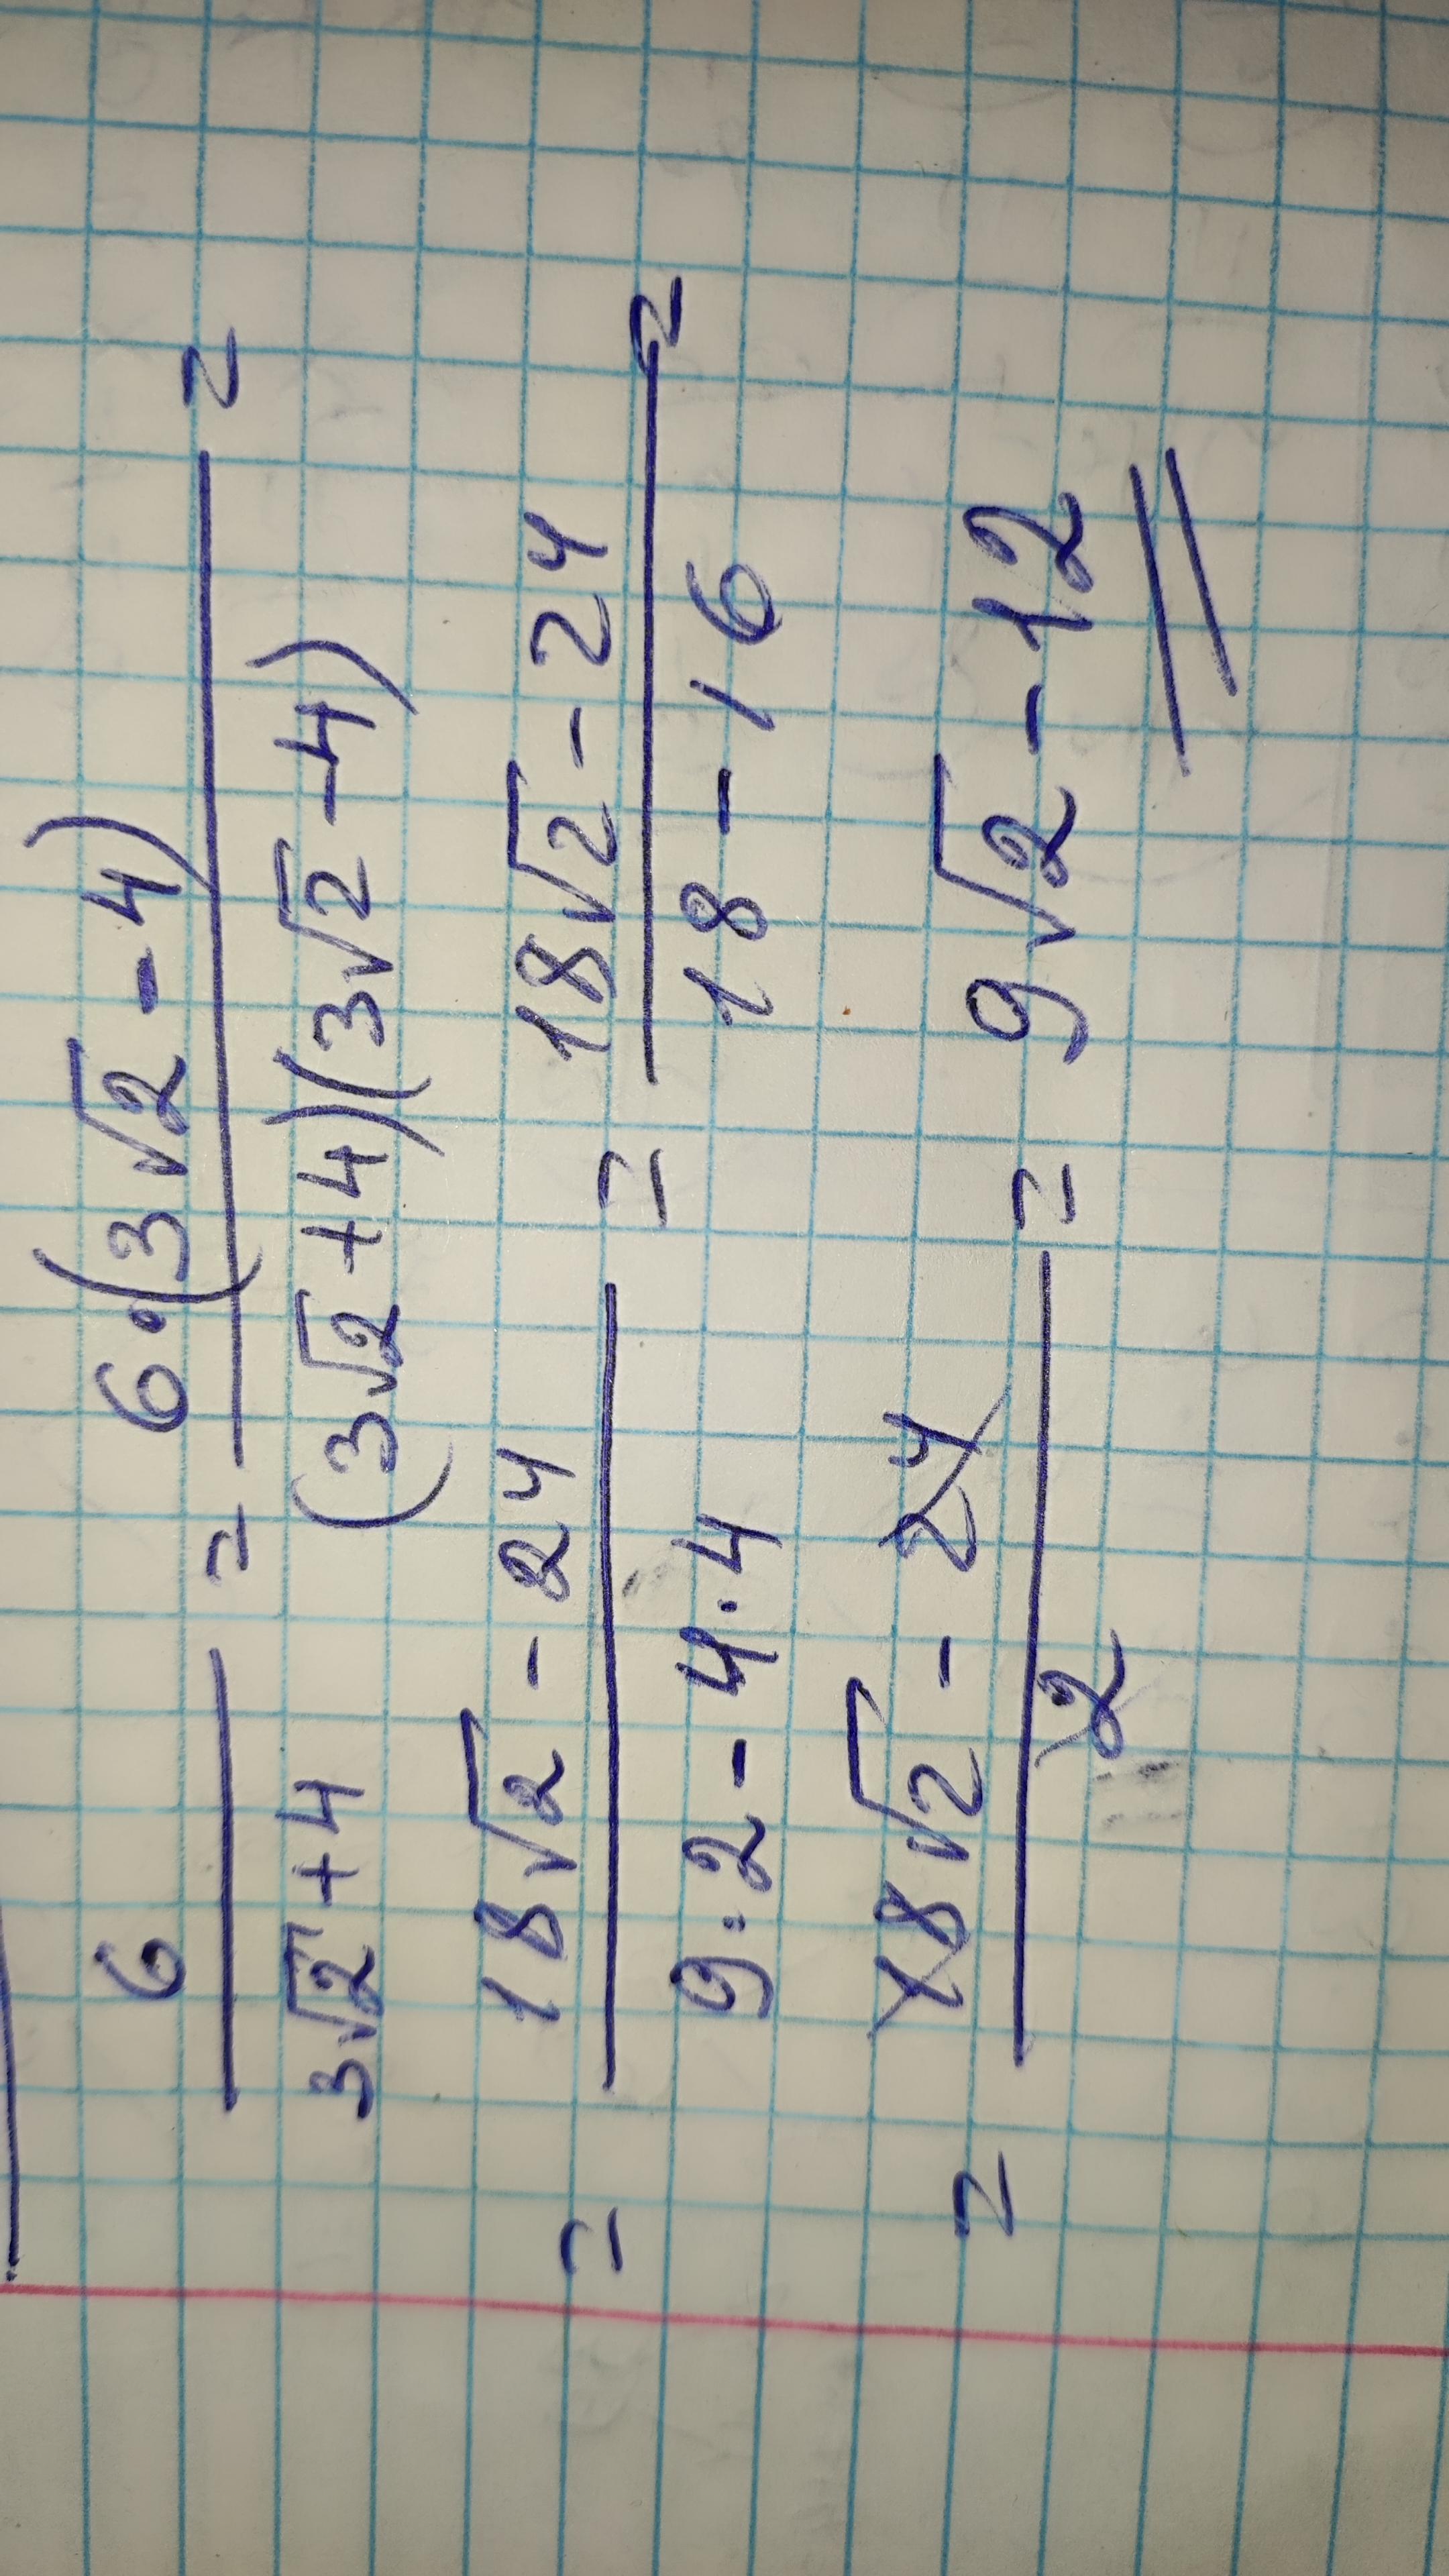 6/(3√2+4) = 6·(3√2-4)/((3√2+4)(3√2-4)) =
= (18√2-24)/(9·2-4·4) = (18√2-24)/(18-16) =
= (18√2-24)/2 = 9√2-12